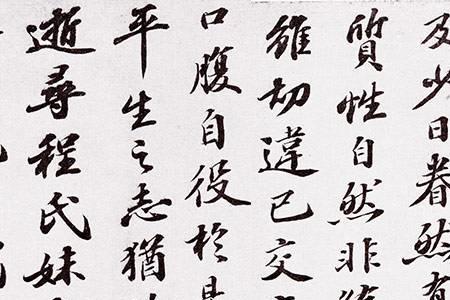 及少日眷然有
質性自然非
雖切違己交
口腹自役於是
平生之志猶
逝尋程氏妹